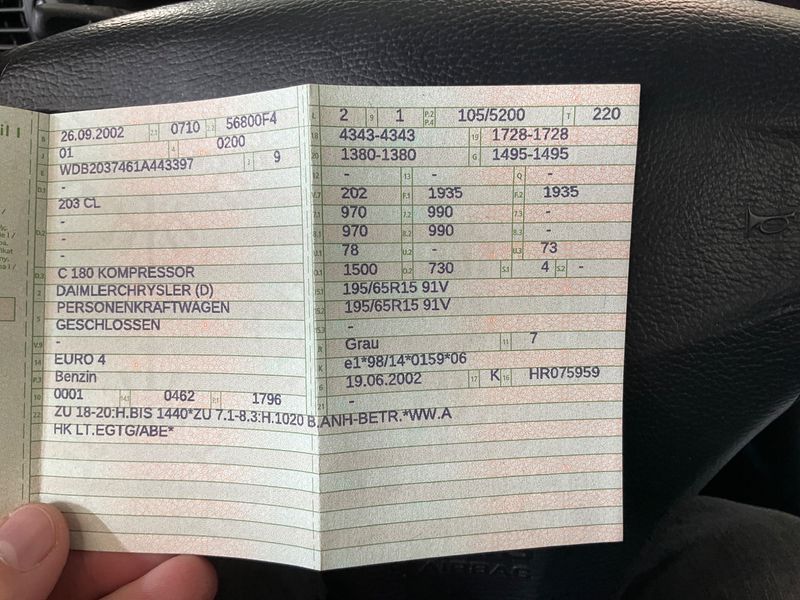 il I
B 26.09.2002 2.1 0710 2.2 56800F4
J 01 4 0200
E WDB2037461A443397 3 9
D.1 -
203 CL
D.2 -
-
-
D.3 C 180 KOMPRESSOR
2 DAIMLERCHRYSLER (D)
5 PERSONENKRAFTWAGEN
GESCHLOSSEN
V.9 -
14 EURO 4
P.3 Benzin
10 0001 14.1 0462 P.1 1796
22 ZU 18-20:H.BIS 1440*ZU 7.1-8.3:H.1020 B.ANH-BETR.*WW.A
HK LT.EGTG/ABE*
L 2 9 1 P.2 P.4 105/5200 T 220
18 4343-4343 19 1728-1728
20 1380-1380 G 1495-1495
12 - 13 - Q -
V.7 202 F.1 1935 F.2 1935
7.1 970 7.2 990 7.3 -
8.1 970 8.2 990 8.3 -
U.1 78 U.2 - U.3 73
O.1 1500 O.2 730 S.1 4 S.2 -
15.1 195/65R15 91V
15.2 195/65R15 91V
15.3 -
R Grau 11 7
K e1*98/14*0159*06
6 19.06.2002 17 K 16 HR075959
21 -
AIRBAG